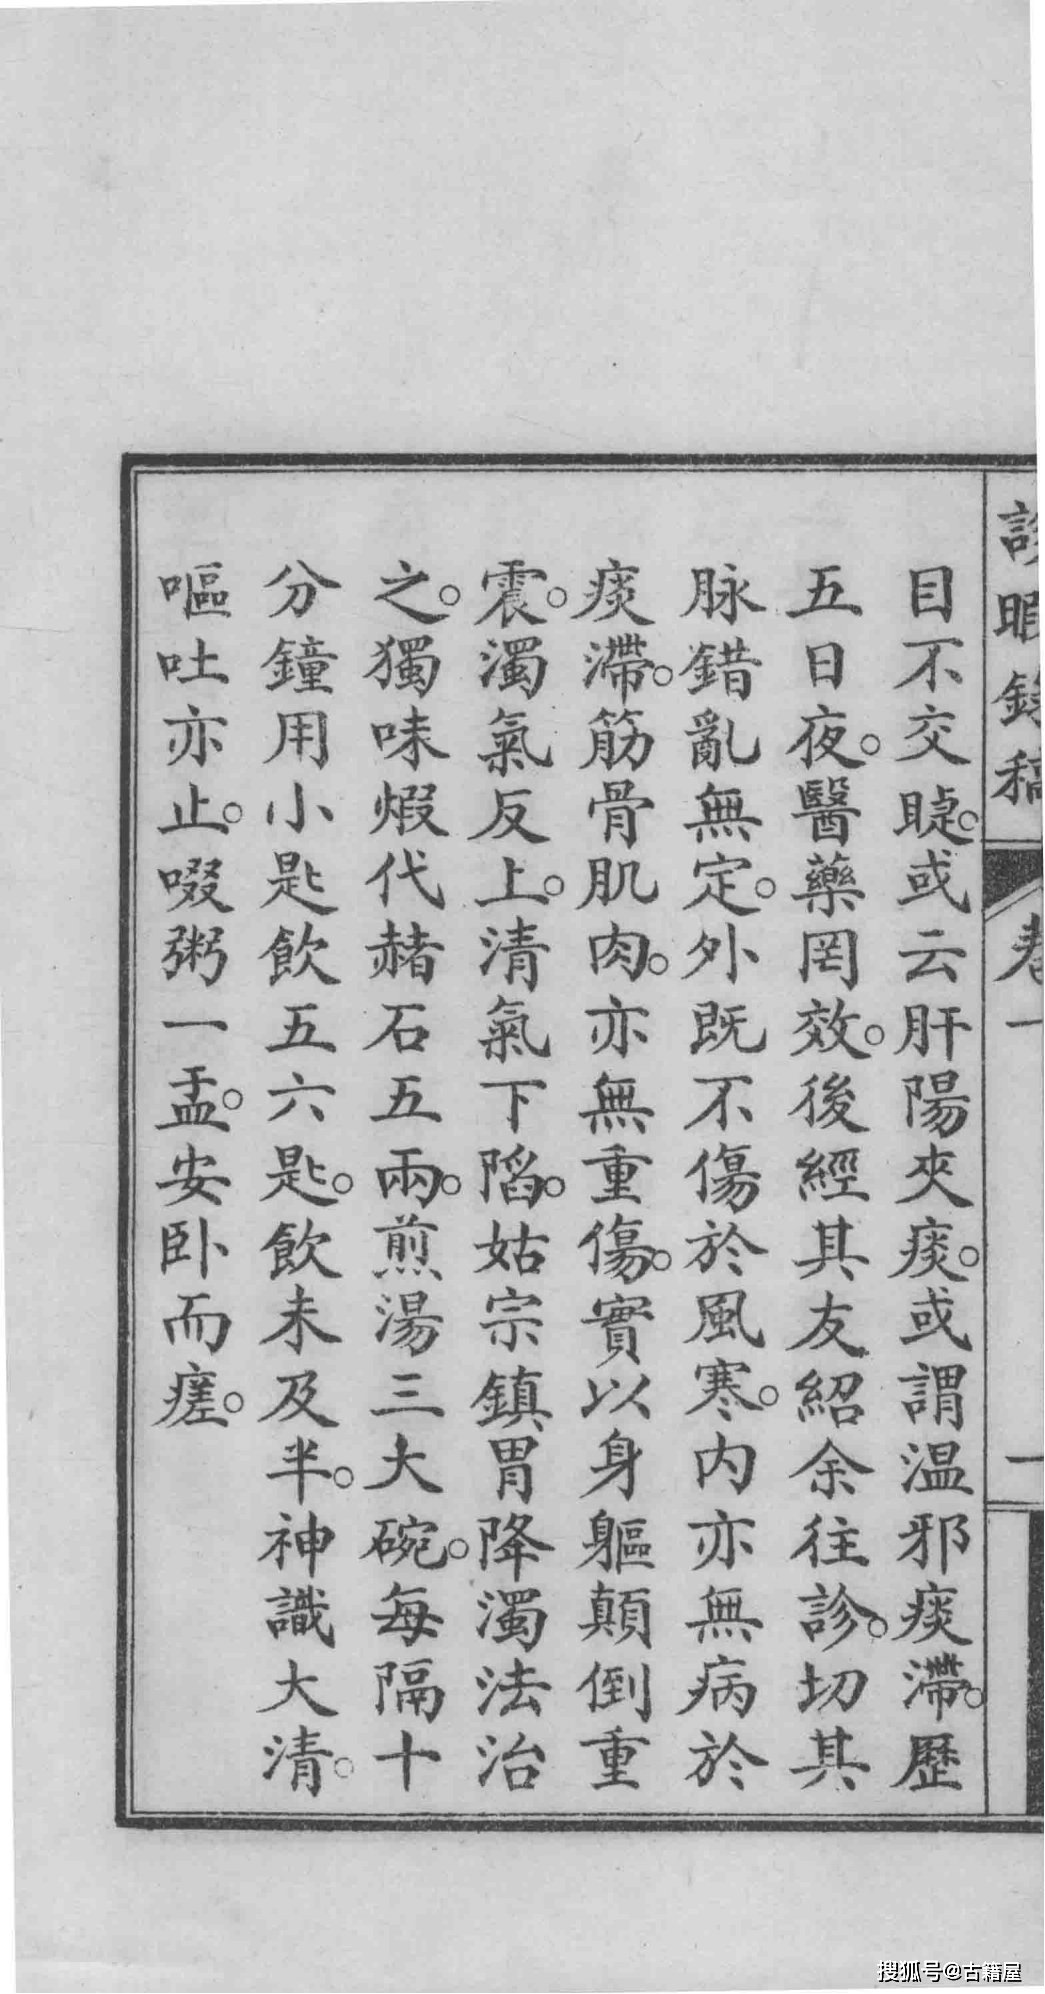 診暇錄稿 卷一 一
目不交睫。或云肝陽夾痰。或謂温邪痰滯。歷
五日夜。醫藥罔效。後經其友紹余往診。切其
脉錯亂無定。外既不傷於風寒。内亦無病於
痰滯。筋骨肌肉。亦無重傷。實以身軀顛倒重
震。濁氣反上。清氣下陷。姑宗鎮胃降濁法治
之。獨味煆代赭石五兩。煎湯三大碗。每隔十
分鐘用小匙飲五六匙。飲未及半。神識大清。
嘔吐亦止。啜粥一盂。安卧而瘥。
搜狐号@古籍屋